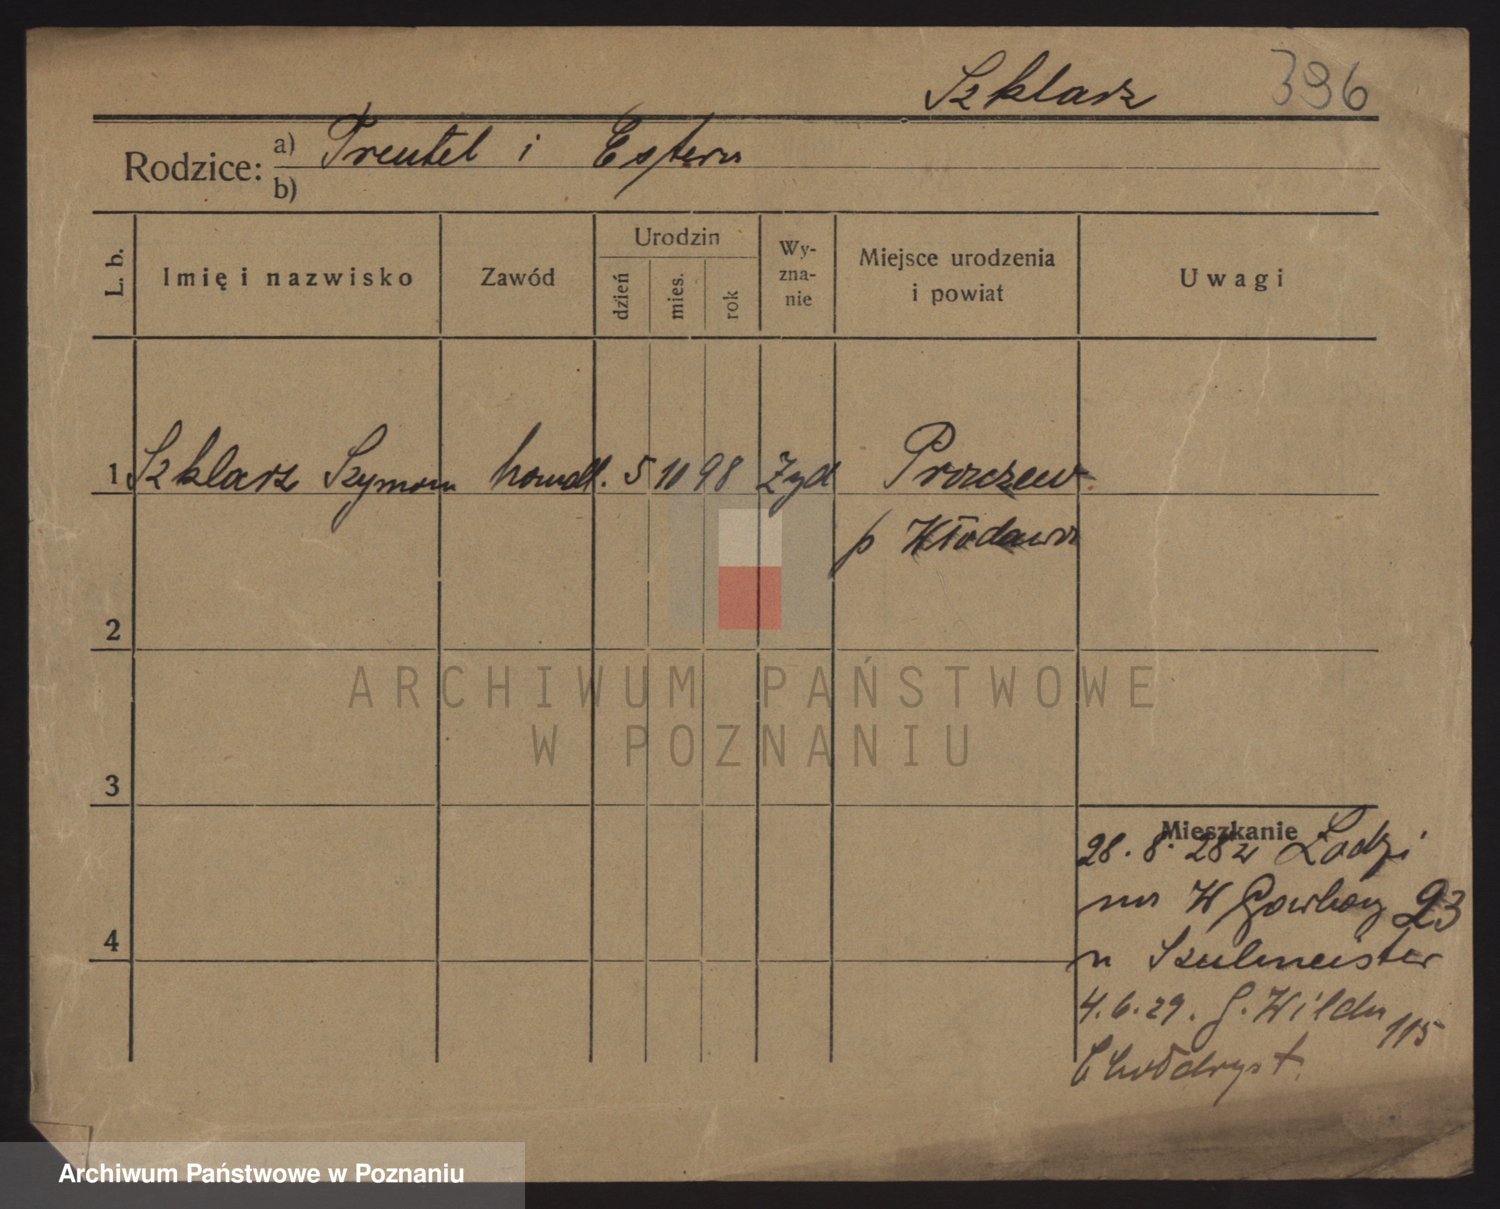 Szklarz 396
Rodzice: a) Freutel i Estera
b)
L. b. Imię i nazwisko Zawód Urodzin dzień mies. rok Wyznanie Miejsce urodzenia i powiat Uwagi
1 Szklarz Szymon handl. 5 10 98 Żyd
p Włodawa
2
ARCHIWUM PAŃSTWOWE
W POZNANIU
3
Mieszkanie
28.8.28 z Łodzi
na W Garbary 23
u Szulmeister
4
4.6.29. G. Wilda 115
Archiwum Państwowe w Poznaniu